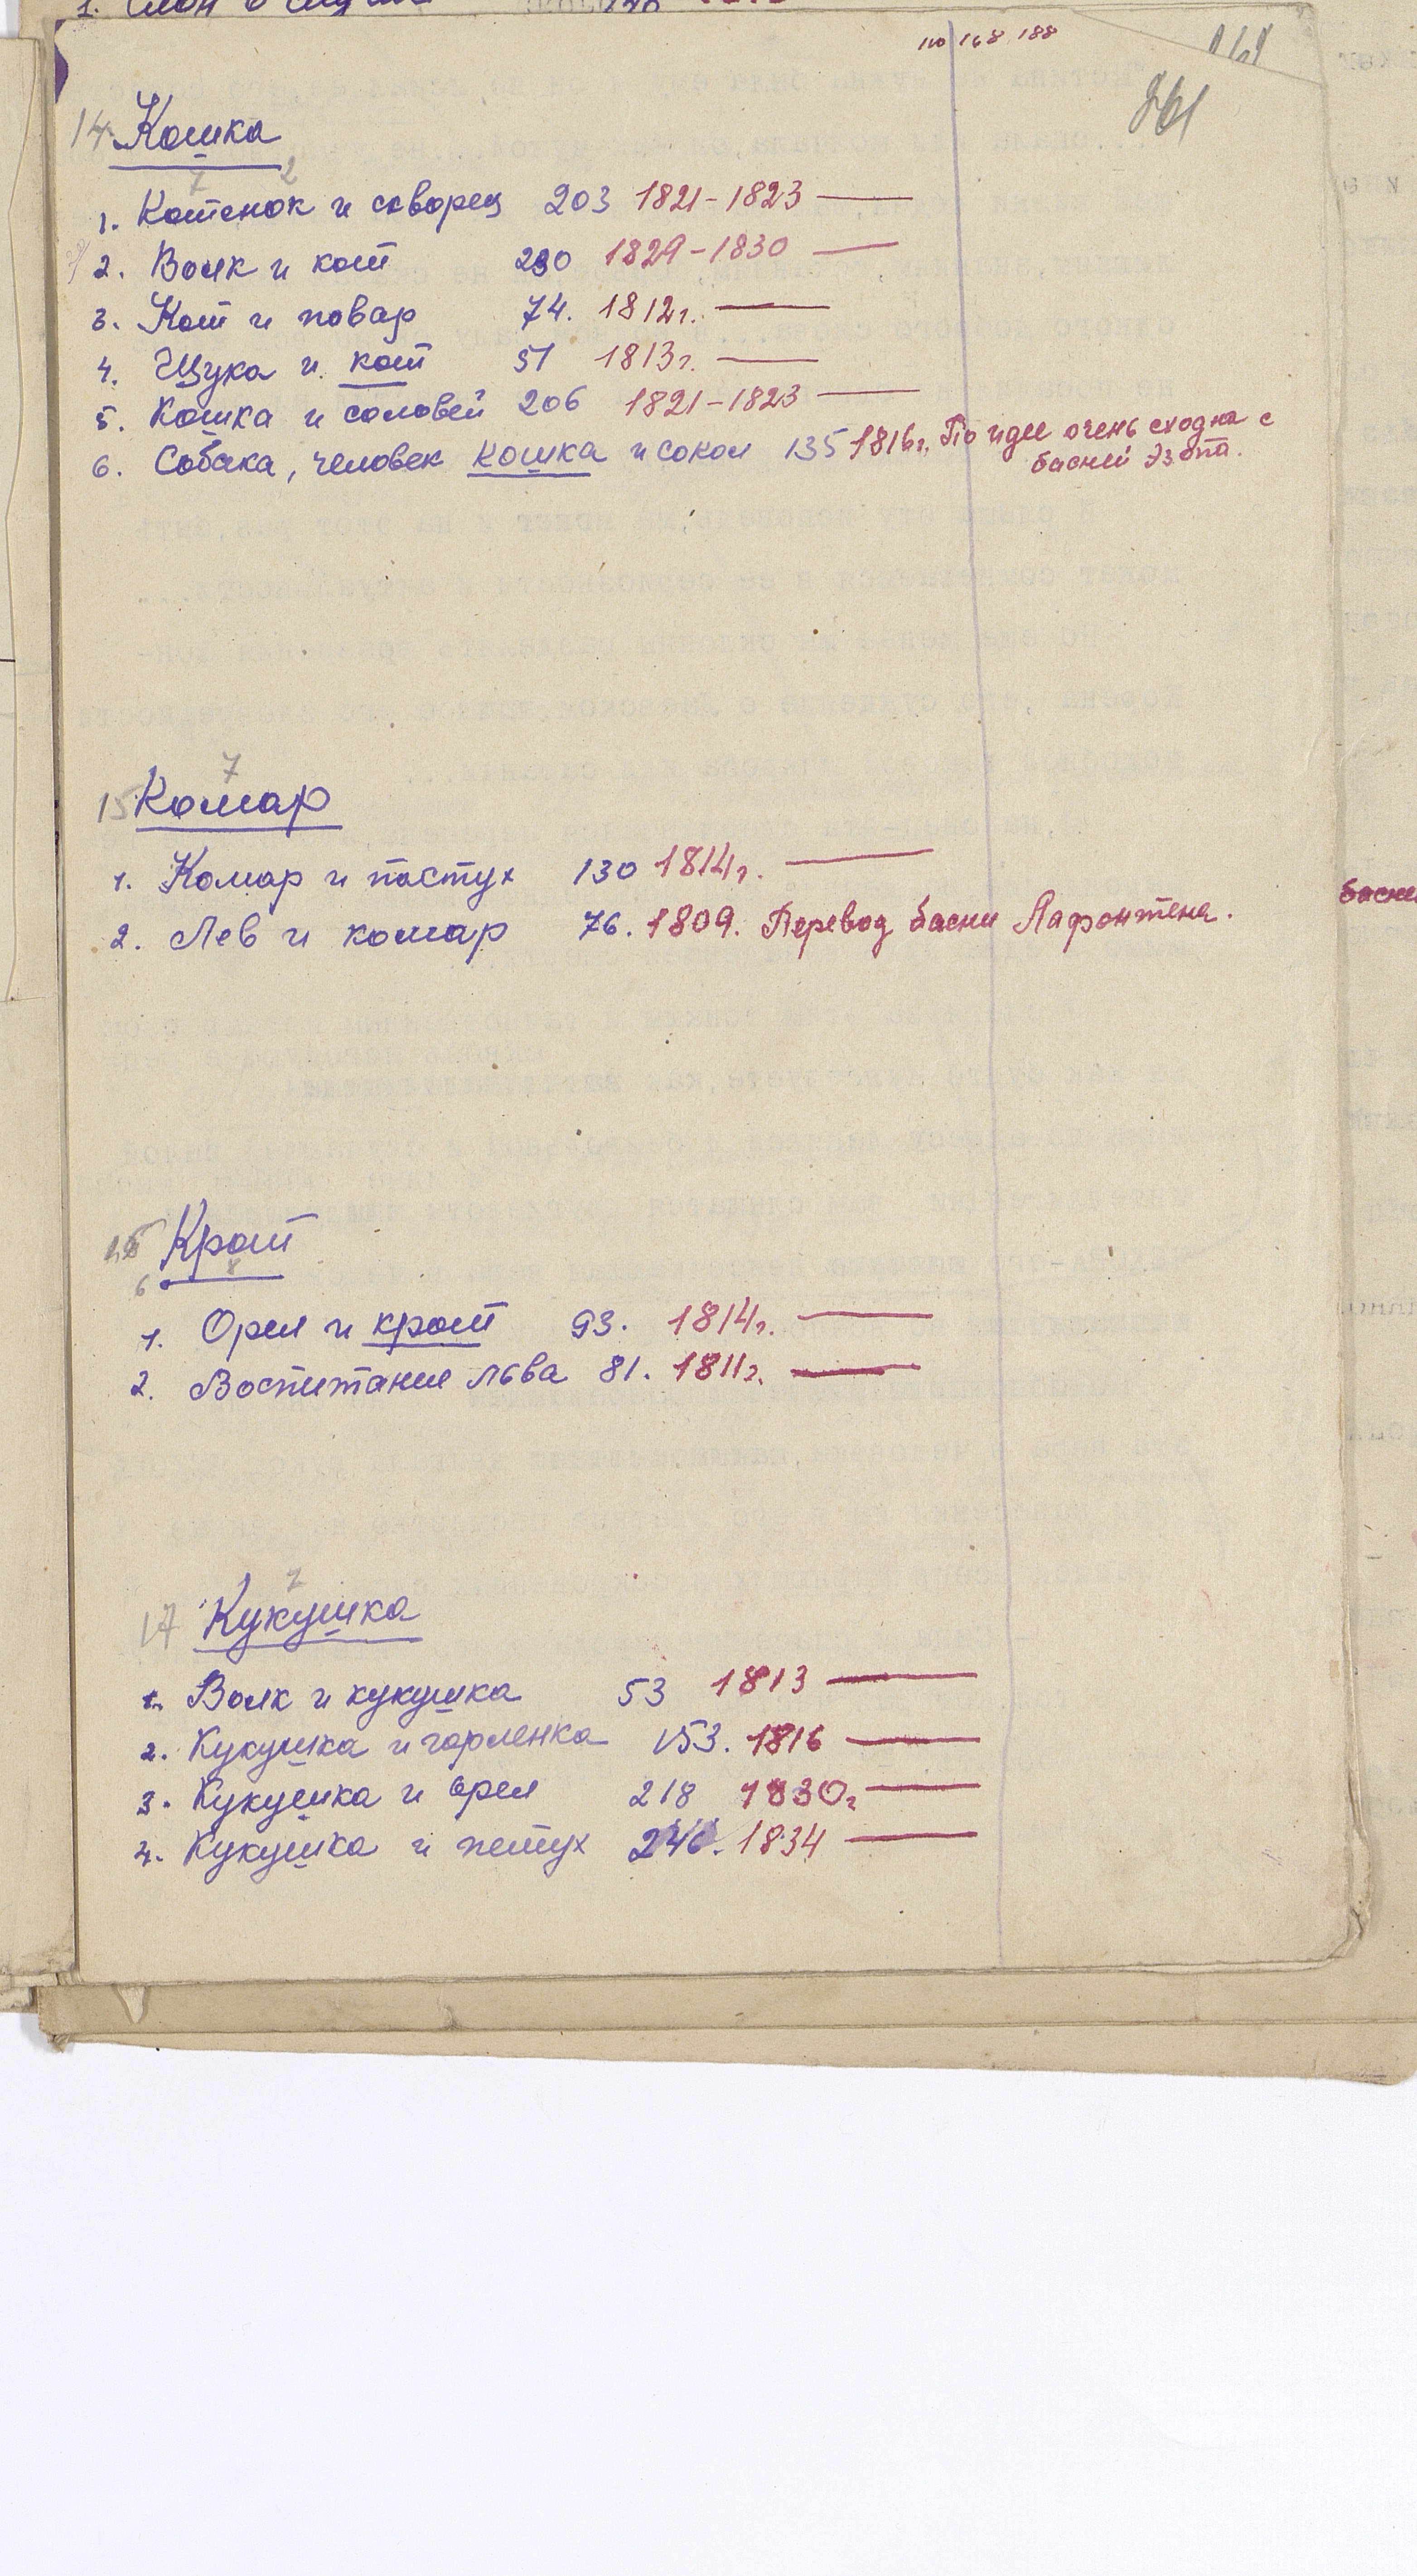 110 168 188
261
14. Кошка
7 2
1. Котенок и скворец 203 1821-1823 —
2. Волк и кот 230 1829-1830 —
3. Кот и повар 74. 1812г. —
4. Щука и кот 51 1813г. —
5. Кошка и соловей 206 1821-1823 —
6. Собака, человек кошка и сокол 135 1816г. По идее очень сходна с
басней Эзопа.
7
15 Комар
1. Комар и пастух 130 1814г. —
2. Лев и комар 76. 1809. Перевод басни Лафонтена.
Крот
6 8
1. Орел и крот 93. 1814г. —
2. Воспитание льва 81. 1811г. —
17 Кукушка
1. Волк и кукушка 53 1813 —
2. Кукушка и горленка 153. 1816 —
3. Кукушка и орел 218 1830г —
4. Кукушка и петух 246. 1834 —